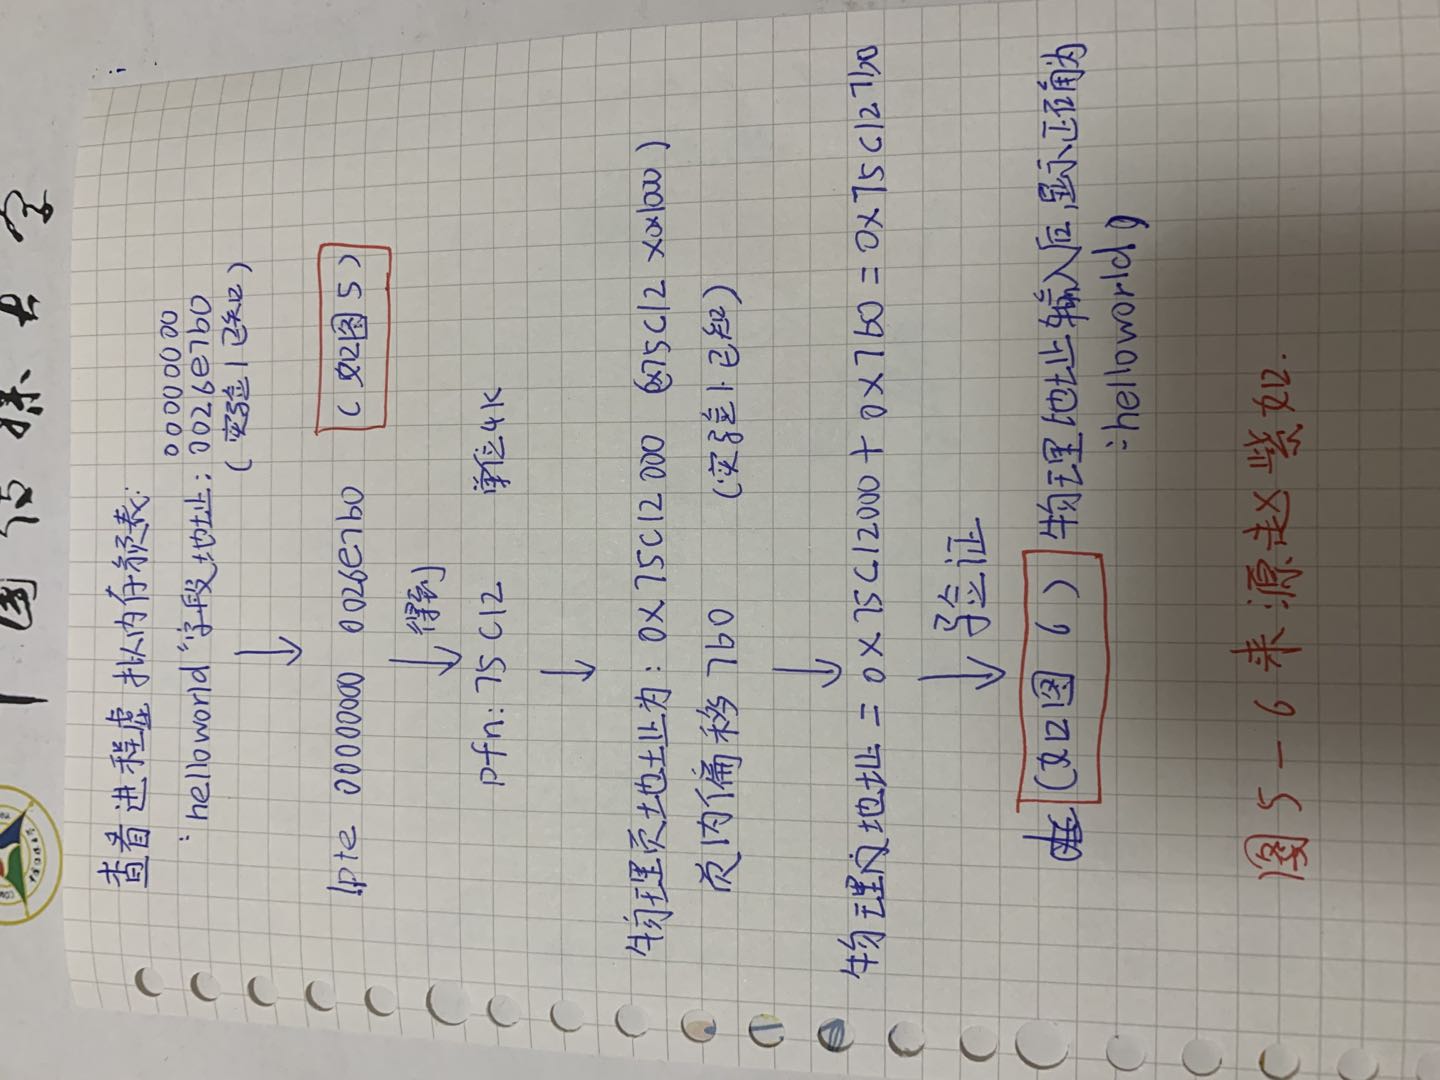 中国传媒大学
查看进程虚拟内存页表:
"helloworld"字段地址: 00000000
0026e7b0
(实验1已知)
!pte 00000000 0026e7b0 (如图5)
得到
pfn: 75C12 单位4K
物理页地址为: 0x75C12000 (0x75C12 x0x1000)
页内偏移 7b0 (实验1已知)
物理内地址 = 0x75C12000 + 0x7b0 = 0x75C127b0
验证
(如图 6) 物理地址输入后,显示正确为
"helloworld"
图5-6来源赵紫如.